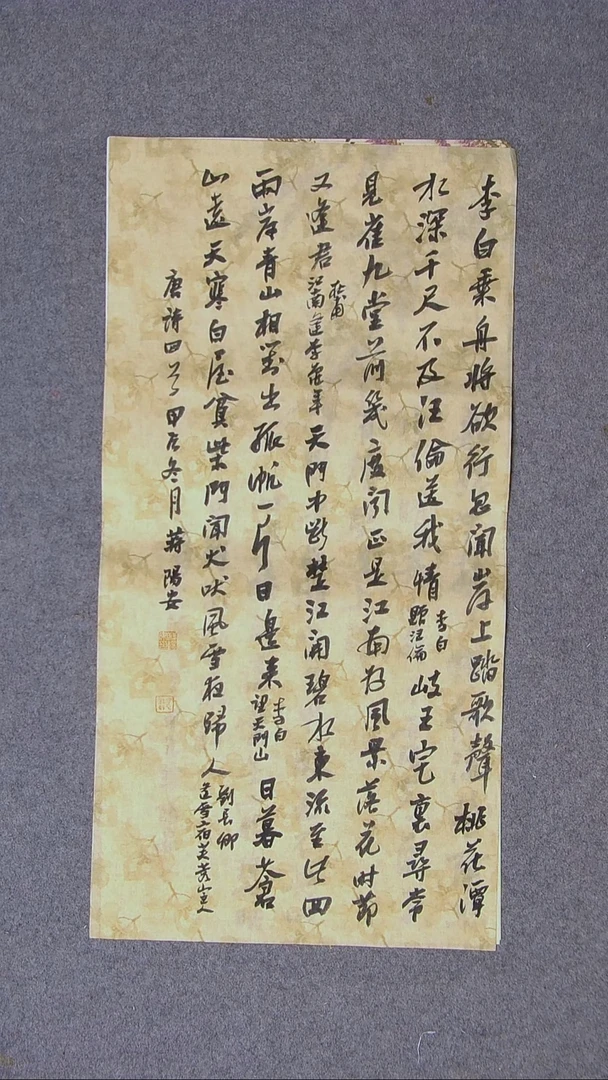 李白乘舟將欲行忽聞岸上踏歌聲桃花潭
水深千尺不及汪倫送我情
李白
贈汪倫
岐王宅裏尋常
見崔九堂前幾度聞正是江南好風景落花時節
又逢君
杜甫
江南逢李龜年
天門中斷楚江開碧水東流至此回
兩岸青山相對出孤帆一片日邊來
李白
望天門山
日暮蒼
山遠天寒白屋貧柴門聞犬吠風雪夜歸人
劉長卿
逢雪宿芙蓉山主人
唐詩四首甲辰冬月蔣陽安